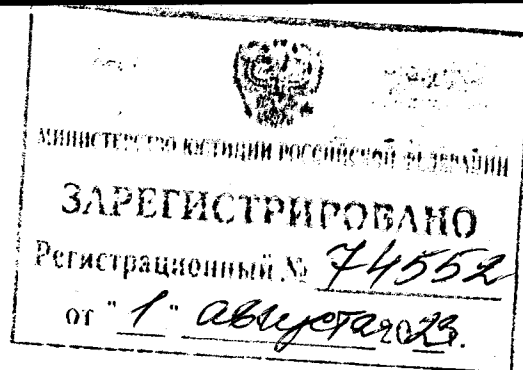 МИНИСТЕРСТВО ЮСТИЦИИ РОССИЙСКОЙ ФЕДЕРАЦИИ
ЗАРЕГИСТРИРОВАНО
Регистрационный № 74552
от "1" августа 2023г.